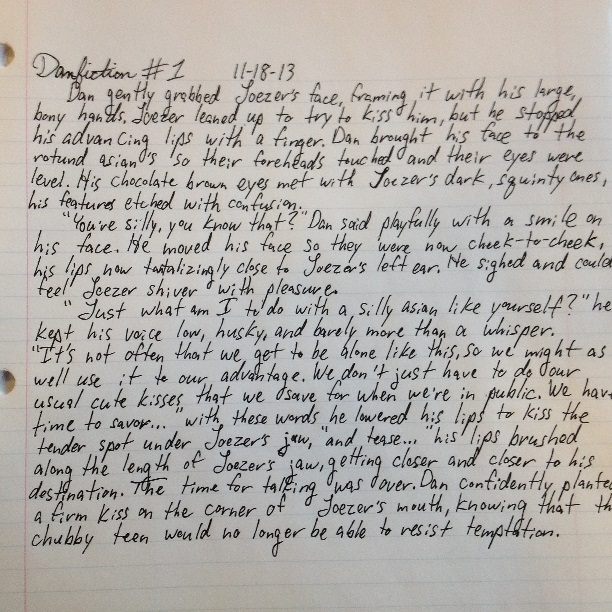 Danfiction #1 11-18-13
Dan gently grabbed Joezer's face, framing it with his large,
bony hands. Joezer leaned up to try to kiss him, but he stopped
his advancing lips with a finger. Dan brought his face to the
rotund asian's so their foreheads touched and their eyes were
level. His chocolate brown eyes met with Joezer's dark, squinty ones,
his features etched with confusion.
"You're silly, you know that?" Dan said playfully with a smile on
his face. He moved his face so they were now cheek-to-cheek,
his lips now tantalizingly close to Joezer's left ear. He sighed and could
feel Joezer shiver with pleasure.
"Just what am I to do with a silly asian like yourself?" he
kept his voice low, husky, and barely more than a whisper.
"It's not often that we get to be alone like this, so we might as
well use it to our advantage. We don't just have to do our
usual cute kisses that we save for when we're in public. We have
time to savor..." with these words he lowered his lips to kiss the
tender spot under Joezer's jaw, "and tease..." his lips brushed
along the length of Joezer's jaw, getting closer and closer to his
destination. The time for talking was over. Dan confidently planted
a firm kiss on the corner of Joezer's mouth, knowing that th
chubby teen would no longer be able to resist temptation.